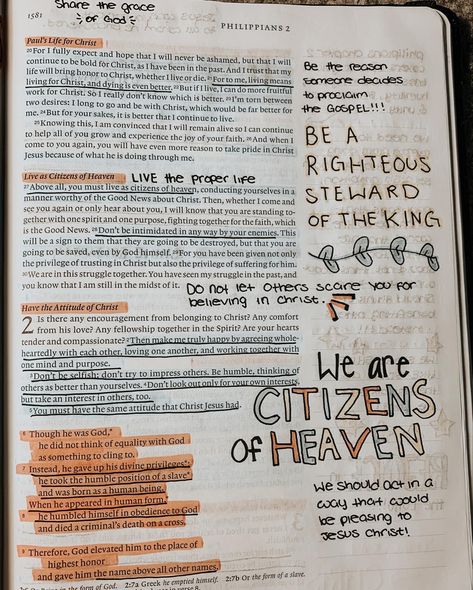 Share the grace
of God
1581
PHILIPPIANS 2
Paul's Life for Christ
20For I fully expect and hope that I will never be ashamed, but that I will
continue to be bold for Christ, as I have been in the past. And I trust that my
life will bring honor to Christ, whether I live or die. 21For to me, living means
living for Christ, and dying is even better. 22But if I live, I can do more fruitful
work for Christ. So I really don't know which is better. 23I'm torn between
two desires: I long to go and be with Christ, which would be far better for
me. 24But for your sakes, it is better that I continue to live.
25Knowing this, I am convinced that I will remain alive so I can continue
to help all of you grow and experience the joy of your faith. 26And when I
come to you again, you will have even more reason to take pride in Christ
Jesus because of what he is doing through me.
Live as Citizens of Heaven
LIVE the proper life
27Above all, you must live as citizens of heaven, conducting yourselves in a
manner worthy of the Good News about Christ. Then, whether I come and
see you again or only hear about you, I will know that you are standing to-
gether with one spirit and one purpose, fighting together for the faith, which
is the Good News. 28Don't be intimidated in any way by your enemies. This
will be a sign to them that they are going to be destroyed, but that you are
going to be saved, even by God himself. 29For you have been given not only
the privilege of trusting in Christ but also the privilege of suffering for him.
30We are in this struggle together. You have seen my struggle in the past, and
you know that I am still in the midst of it.
Do not let others scare you for
believing in Christ.
Have the Attitude of Christ
2 Is there any encouragement from belonging to Christ? Any comfort
from his love? Any fellowship together in the Spirit? Are your hearts
tender and compassionate? 2Then make me truly happy by agreeing whole-
heartedly with each other, loving one another, and working together with
one mind and purpose.
3Don't be selfish; don't try to impress others. Be humble, thinking of
others as better than yourselves. 4Don't look out only for your own interests,
but take an interest in others, too.
5You must have the same attitude that Christ Jesus had.
6 Though he was God,*
he did not think of equality with God
as something to cling to.
7 Instead, he gave up his divine privileges*;
he took the humble position of a slave*
and was born as a human being.
When he appeared in human form,*
8 he humbled himself in obedience to God
and died a criminal's death on a cross.
9 Therefore, God elevated him to the place of
highest honor
and gave him the name above all other names,
form of God. 2:7a Greek he emptied himself. 2:7b Or the form of a slave.
Be the reason
someone decides
to proclaim
the GOSPEL!!!
BE A
RIGHTEOUS
STEWARD
OF THE KING
We are
CITIZENS
OF HEAVEN
We should act in a
way that would
be pleasing to
Jesus Christ!